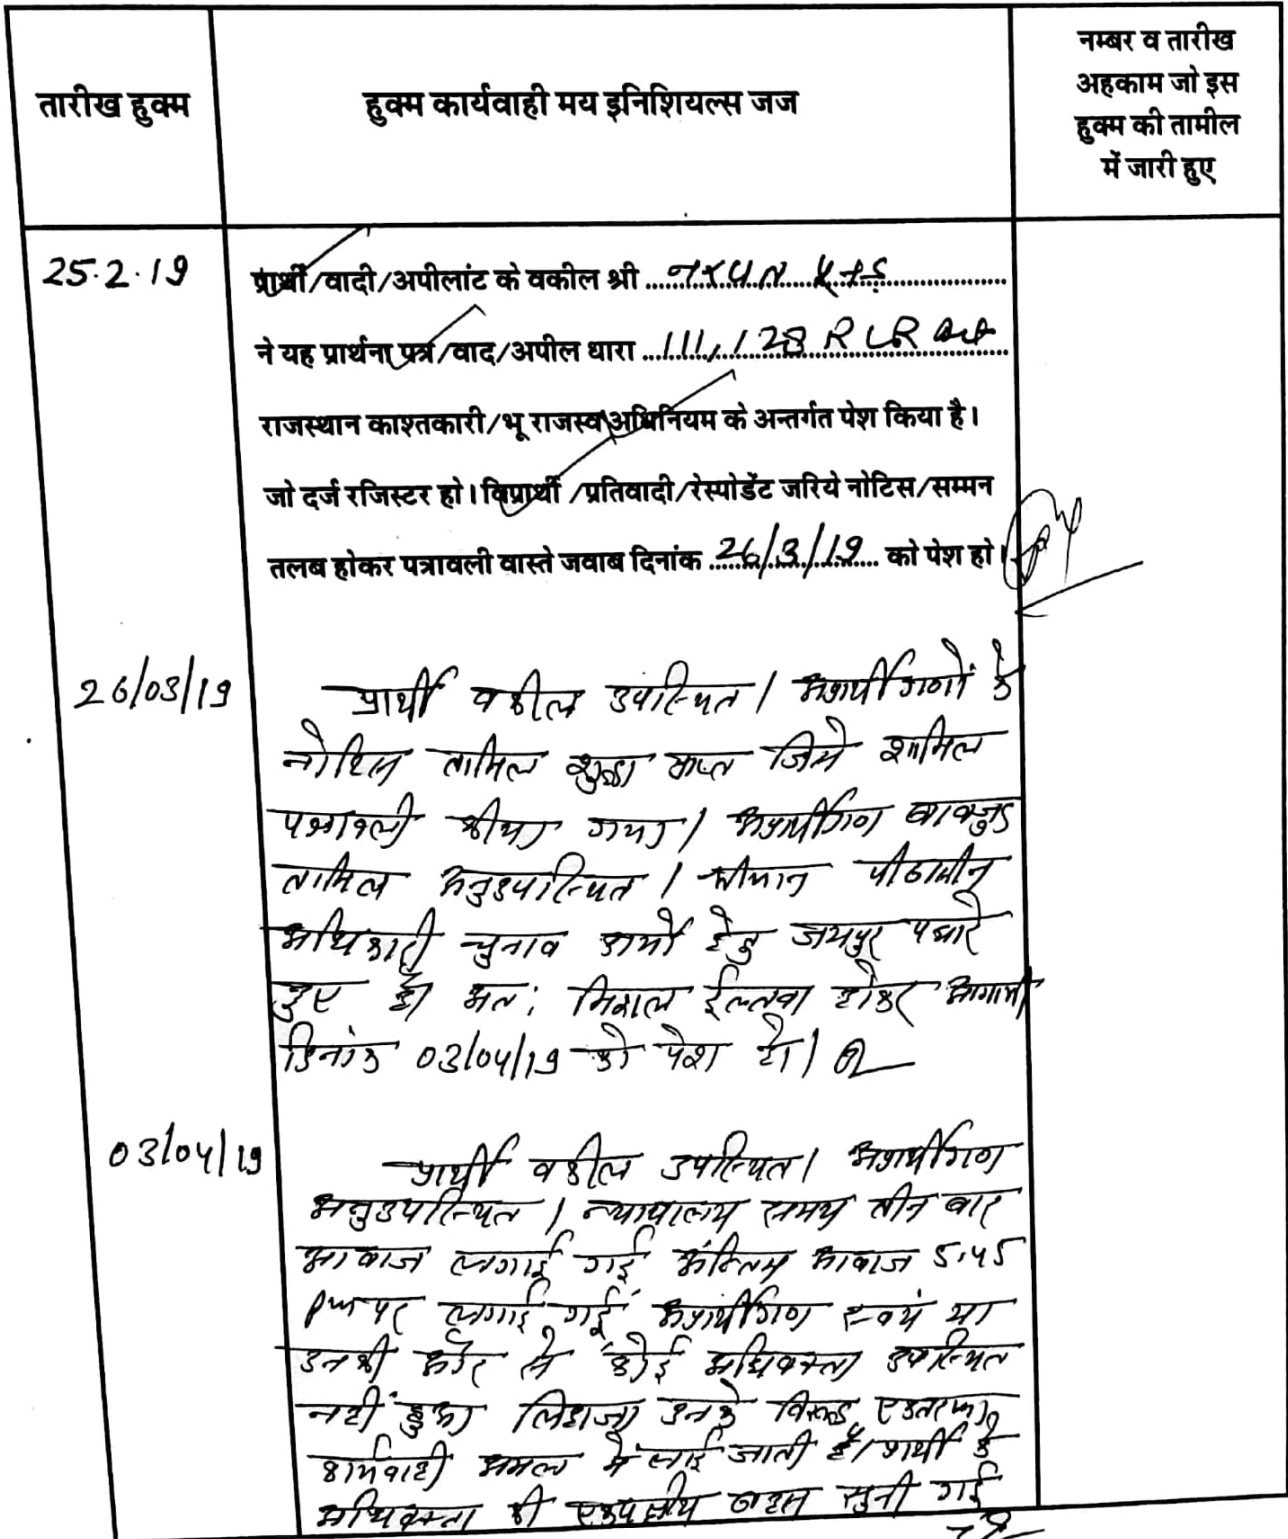 तारीख हुक्म
हुक्म कार्यवाही मय इनिशियल्स जज
नम्बर व तारीख
अहकाम जो इस
हुक्म की तामील
में जारी हुए
25.2.19
प्रार्थी/वादी/अपीलांट के वकील श्री
ने यह प्रार्थना पत्र/वाद/अपील धारा 111, 128 R LR Act
राजस्थान काश्तकारी/भू राजस्व अधिनियम के अन्तर्गत पेश किया है।
जो दर्ज रजिस्टर हो। विप्रार्थी /प्रतिवादी/रेस्पोडेंट जरिये नोटिस/सम्मन
तलब होकर पत्रावली वास्ते जवाब दिनांक 26/3/19 को पेश हो।
26/03/19
प्रार्थी वकील उपस्थित। अप्रार्थीगणों के
नोटिस तामिल शुदा प्राप्त जिसे शामिल
पत्रावली कीया गया। अप्रार्थीगण बावजुद
तामिल अनुउपस्थित। श्रीमान पीठासीन
अधिकारी चुनाव कार्यो हेतु जयपुर पधारे
हुए है। अतः मिशल ईल्तवा होकर आगामी
दिनांक 03/04/19 को पेश हो।
03/04/19
प्रार्थी वकील उपस्थित। अप्रार्थीगण
अनुउपस्थित। न्यायालय समय तीन बार
आवाज लगाई गई अंन्तिम आवाज 5.45
pm पर लगाई गई। अप्रार्थीगण स्वयं या
उनकी और से कोई अधिवक्ता उपस्थित
नहीं हुआ लिहाजा उनके विरूद्ध एकतरफा
कार्यवाही अमल में लाई जाती है। प्रार्थी के
अधिवक्ता की एकपक्षीय बहस सुनी गई